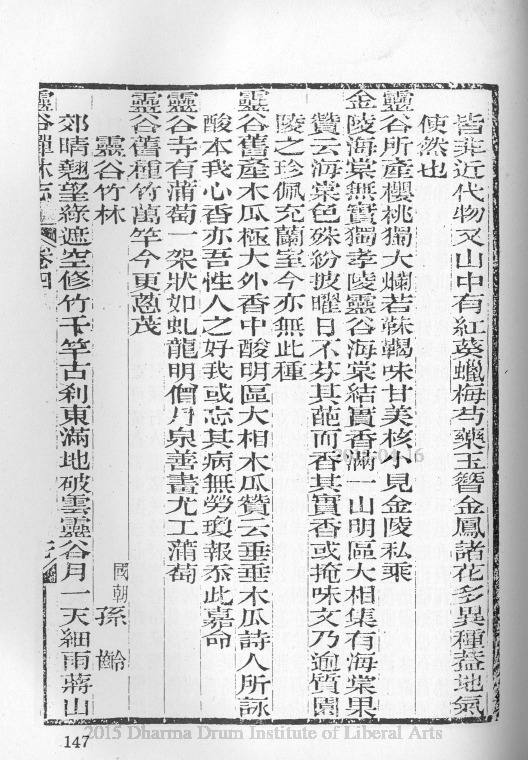 皆非近代物又山中有紅葵蠟梅芍藥玉簪金鳳諸花多異種葢地氣
使然也
靈谷所產櫻桃獨大爛若靺鞨味甘美核小見金陵私乘
金陵海棠無實獨孝陵靈谷海棠結實香滿一山明區大相集有海棠果
贊云海棠色殊紛披曜日不芬其葩而香其實香或掩味文乃逾質園
陵之珍佩充蘭室今亦無此種
靈谷舊產木瓜極大外香中酸明區大相木瓜贊云垂垂木瓜詩人所詠
酸本我心香亦吾性人之好我或忘其病無勞瓊報忝此嘉命
靈谷寺有蒲萄一架狀如虬龍明僧月泉善畫尤工蒲萄
靈谷舊種竹萬竿今更蔥茂
靈谷竹林
國朝 孫 齡
郊晴翹望綠遮空修竹千竿古刹東滿地破雲靈谷月一天細雨蔣山
靈谷禪林志 卷四
147
2015 Dharma Drum Institute of Liberal Arts